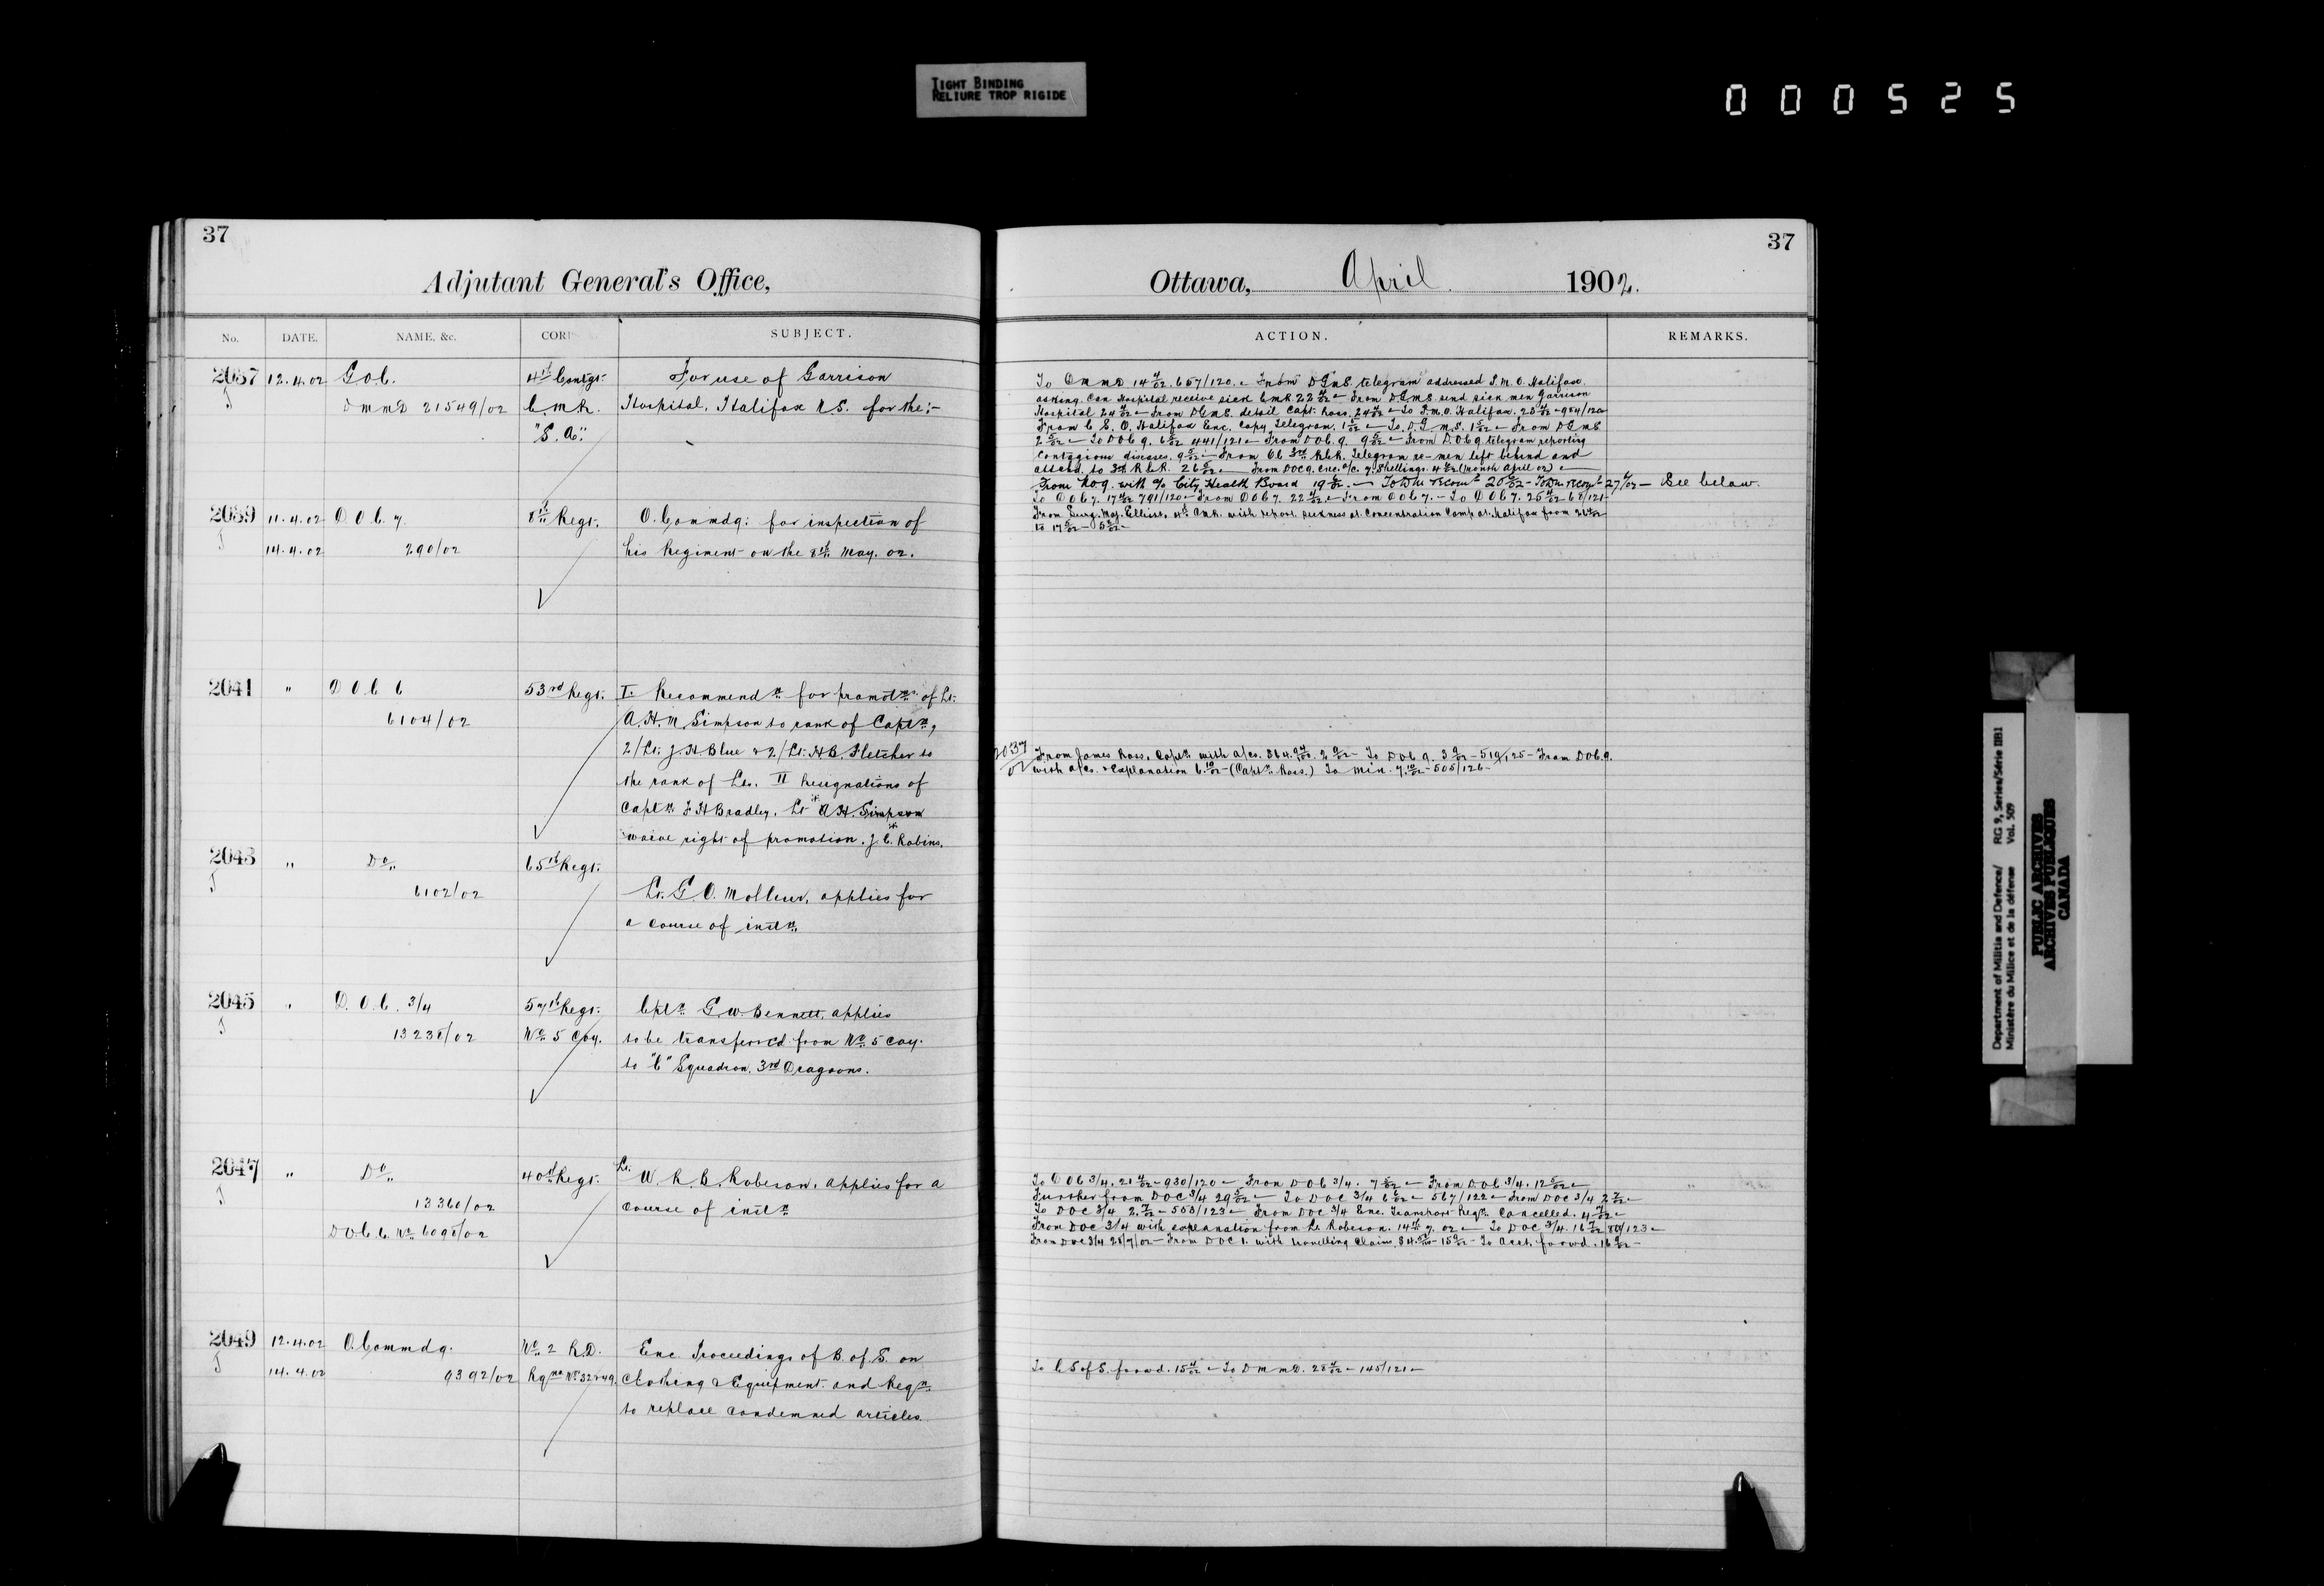 TIGHT BINDING
RELIURE TROP RIGIDE
000525
37
Adjutant General's Office,
No. DATE. NAME, &c. CORPS SUBJECT.
2037 12.4.02 G.O.C. 4th Contgt. For use of Garrison
D M M D 21549/02 C.M.R. Hospital, Halifax N.S. for the:-
"S.A."
2039 11.4.02 D.O.C. 7. 8th Regt. O. Commdg: for inspection of
14.4.02 290/02 his Regiment on the 8th May. 02.
2041 " D O C 6 53rd Regt. I. Recommendn for promotns of Lt.
6104/02 A.H.M. Simpson to rank of Captn,
2/Lt. J.H Blue & 2/Lt. H.B. Fletcher to
the rank of Lts. II Resignations of
Captn F H Bradley. Lt A H. Simpson
waive right of promotion. J. C. Robins.
2043 " Do 65th Regt.
6102/02 Lt. G. O. Molleur, applies for
a course of instn
2045 " D. O. C. 3/4 57th Regt. Cptn G.W. Bennett, applies
13238/02 No 5 Coy. to be transferred from No 5 Coy.
to "C" Squadron, 3rd Dragoons.
2047 " Do 40th Regt. Lt. W. R. B. Roberson, applies for a
13360/02 course of instn
D O C 6. No 6098/02
2049 12.4.02 O. Commdg. No 2 R.D. Enc Proceedings of B. of S. on
14.4.02 9392/02 Rqns Nos 32 & 49 Clothing & Equipment and Reqn
to replace condemned articles
37
Ottawa, April 1902.
ACTION. REMARKS.
To D M M D 14 4/02. 657/120. From D G M S. telegram addressed P.M.O. Halifax.
asking. Can Hospital receive sick C M R 22 4/02 From D G M S. send sick men Garrison
Hospital 24 4/02 From D G M S. detail Capt. Ross. 24 4/02 To P.M.O. Halifax. 25 4/02 984/120
From C. S. O. Halifax Enc. Copy Telegram. 1 5/02 To. D. G. M. S. 1 5/02 From D G M S
2 5/02 To D O C 9. 6 5/02 441/121 From D O C. 9. 9 5/02 From D.O.C 9 telegram reporting
Contagious diseases. 9 5/02 From O C 3rd R.C.R. Telegram re men left behind and
attend. to 3rd R.C.R. 26 5/02 From DOC 9. enc. a/c. 7 Shellings 4 6/02 (Month April 02)
From with a/c City Health Board 19 6/02 20 6/02 27 6/02 See below.
To D O C 7. 17 4/02 791/120 From D O C 7. 22 4/02 From D O C 7. To D O C 7. 25 4/02 68/121
From Surg. Maj. Elliott, 4th C M R. with report. sickness at. Concentration Camp at. Halifax from
to 17 5/02
2037/02 From James Ross. Captn with a/cs. 2 9/02 To D O C 9. 3 9/02 519/125 From D O C 9.
with a/cs. & Explanation 6. 10/02 (Captn Ross.) To Min. 7. 10/02 505/126
To D O C 3/4. 21 4/02 930/120 From D O C 3/4. 7 5/02 From D O C 3/4. 12 5/02
Further from DOC 3/4 29 5/02 To DOC 3/4 6 6/02 567/122 From DOC 3/4 2 7/02
To DOC 3/4 2. 7/02 553/123 From DOC 3/4 Enc. Transport Reqn. Cancelled. 4 7/02
From DOC 3/4 with explanation from Lt Roberson. 14th 7. 02 To DOC 3/4. 16 7/02 /123
From DOC 3/4 28/7/02 From DOC 1. with travelling Claim. 15 9/02 To Acct. forwd. 16 9/02
To C S of S. forwd. 15 4/02 To D M M D. 28 4/02 145/121
Department of Militia and Defence/ RG 9, Series/Série IIB1
Ministère du Milice et de la défense Vol. 509
PUBLIC ARCHIVES
ARCHIVES PUBLIQUES
CANADA